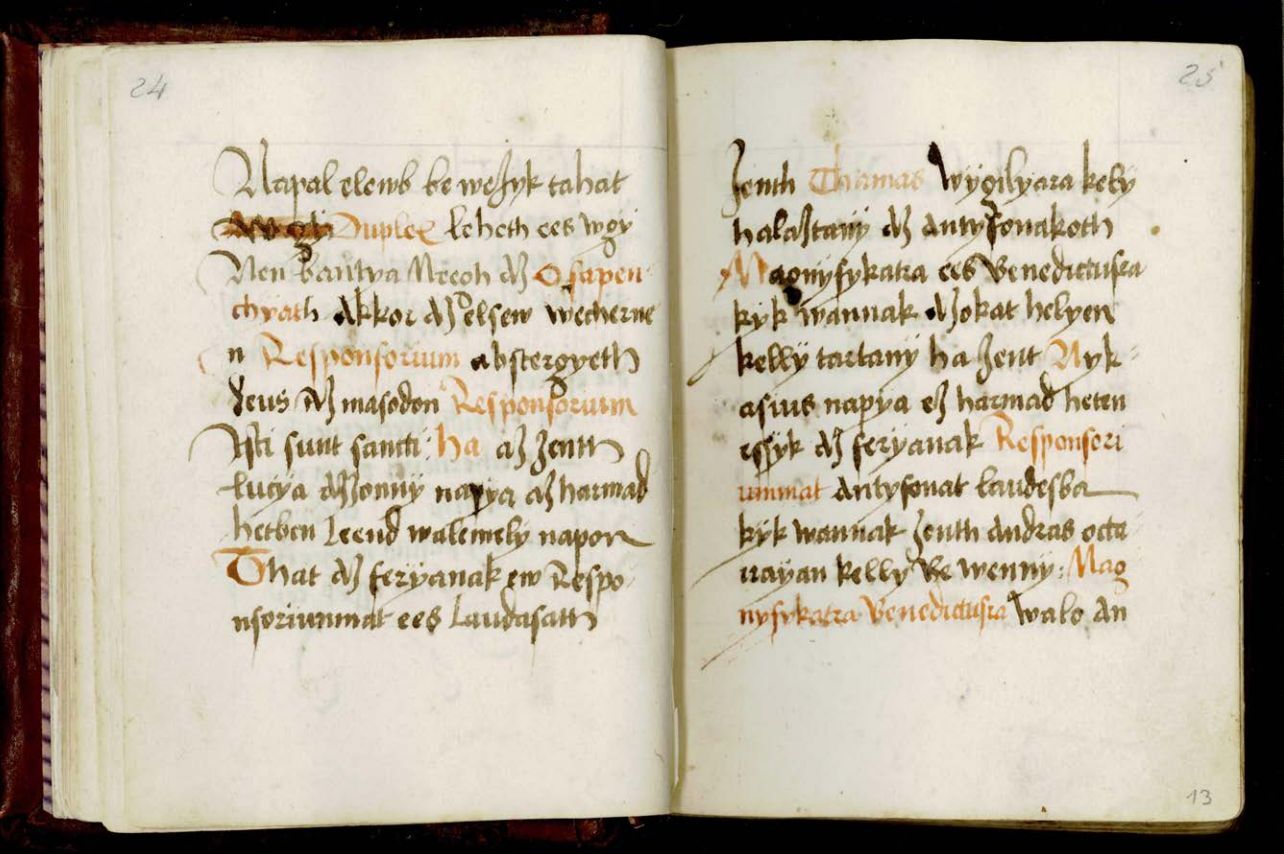 24
Napal elewb be weʒyk tahat
Duplex leheth ees wgy
Nen bantya Mreoh aʒ O sapen
cyath Akkor aʒ elsew wecherne
n Responsorium abstergyeth
deus Aʒ masodon Responsorium
Isti sunt sancti: ha aʒ ʒenth
lucya aʒʒonny napya aʒ harmad
hetben leend walemely napon
That aʒ feryanak ew Respo
nsoriummat ees Laudasath
25
ʒenth Thamas wygilyara kely
halaʒtany aʒ Antyfonakoth
Magnysykatra ees Benedictusra
kyk wannak aʒokat helyen
kelly tartany ha ʒent Nyk
asius napya eʒ harmad heten
essyk aʒ feryanak Responsori
ummat Antyfonat laudesba
kyk wannak ʒenth Andras octa
uayan kelly be wenny: Mag
nysykatra Benedictusra walo An
13